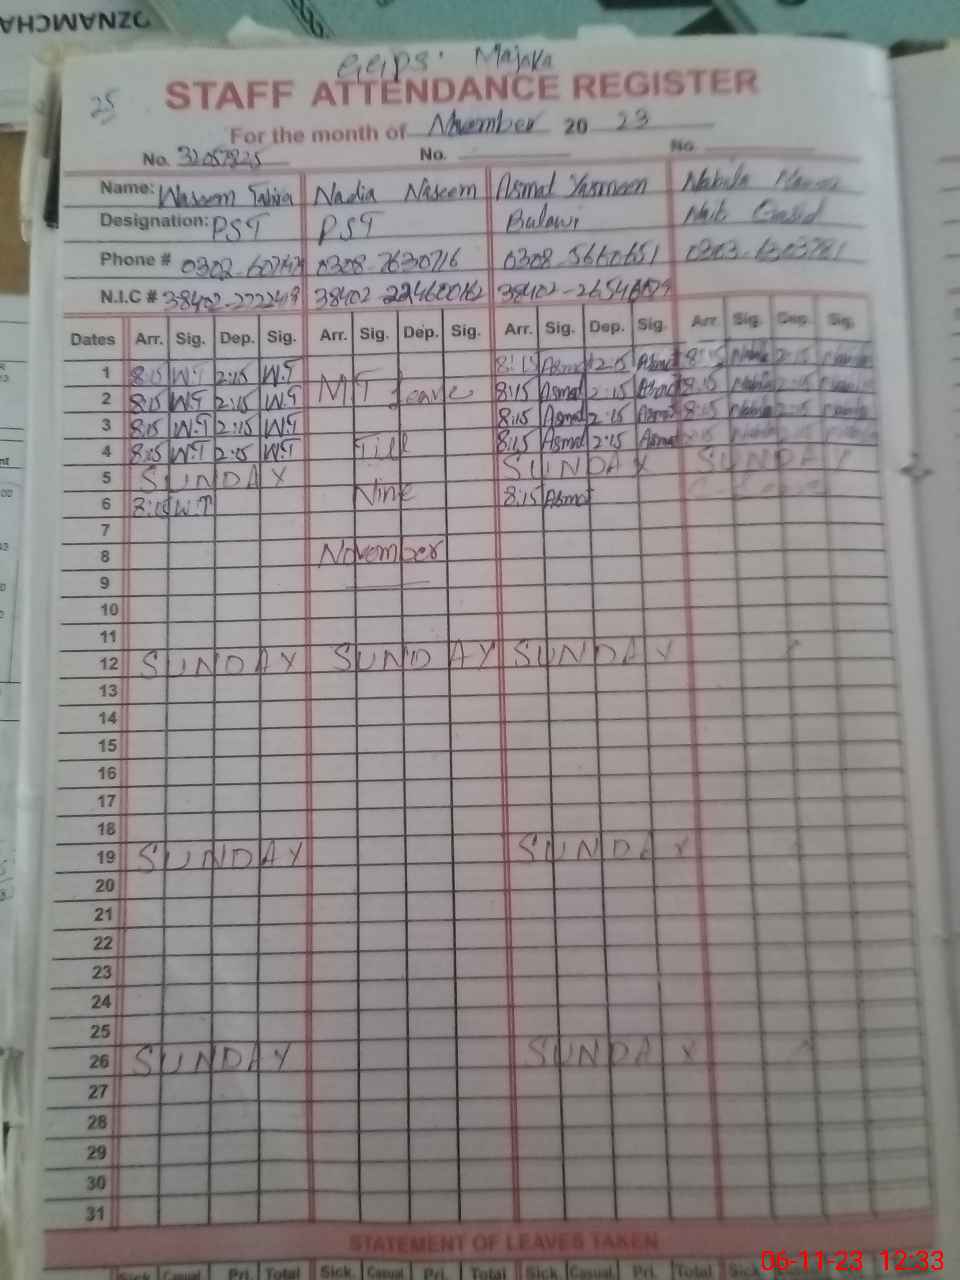 OZNAMCHA
GGPS. Majoka
25
STAFF ATTENDANCE REGISTER
For the month of November 20 23
No. 32057825 No. No.
Name: Waseem Tahira Nadia Naseem Asmal Yasmeen Nabila
Designation: PST PST Bulawi Naib
Phone # 0302- 0308-7630716 0308-5660651 0303-6303781
N.I.C # 38402-222249 38402-22460062 38402-
Dates Arr. Sig. Dep. Sig. Arr. Sig. Dep. Sig. Arr. Sig. Dep. Sig. Arr. Sig. Dep. Sig.
1 8:15 W.T 2:15 W.T 8:15 Asmal 2:15 Asmal 8:15 Nabila 2:15 Nabila
2 8:15 W.T 2:15 W.T MT Leave 8:15 Asmal 2:15 Asmal 8:15 Nabila 2:15 Nabila
3 8:15 W.T 2:15 W.T 8:15 Asmal 2:15 Asmal 8:15 Nabila 2:15 Nabila
4 8:15 W.T 2:15 W.T Till 8:15 Asmal 2:15 Asmal Nabila 2:15 Nabila
5 SUNDAY SUNDAY SUNDAY
6 8:15 W.T Nine 8:15 Asmal
7
8 November
9
10
11
12 SUNDAY SUNDAY SUNDAY
13
14
15
16
17
18
19 SUNDAY SUNDAY
20
21
22
23
24
25
26 SUNDAY SUNDAY
27
28
29
30
31
STATEMENT OF LEAVES TAKEN
Sick Casual Pri. Total Sick. Casual Pri. Total Sick Casual Pri. Total Sick
06-11-23 12:33